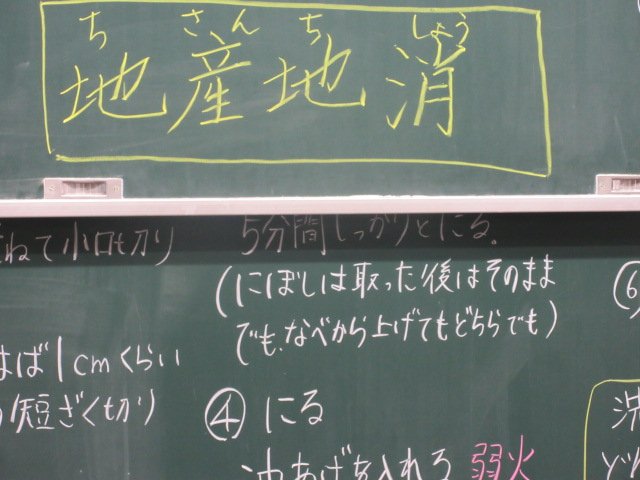 ち さん ち しょう
地産地消
ねて小口切り
5分間しっかりとにる。
(にぼしは取った後はそのまま
でも、なべから上げてもどちらでも)
はば1cmくらい
短ざく切り
④ にる
油あげを入れる 弱火
⑥
洗